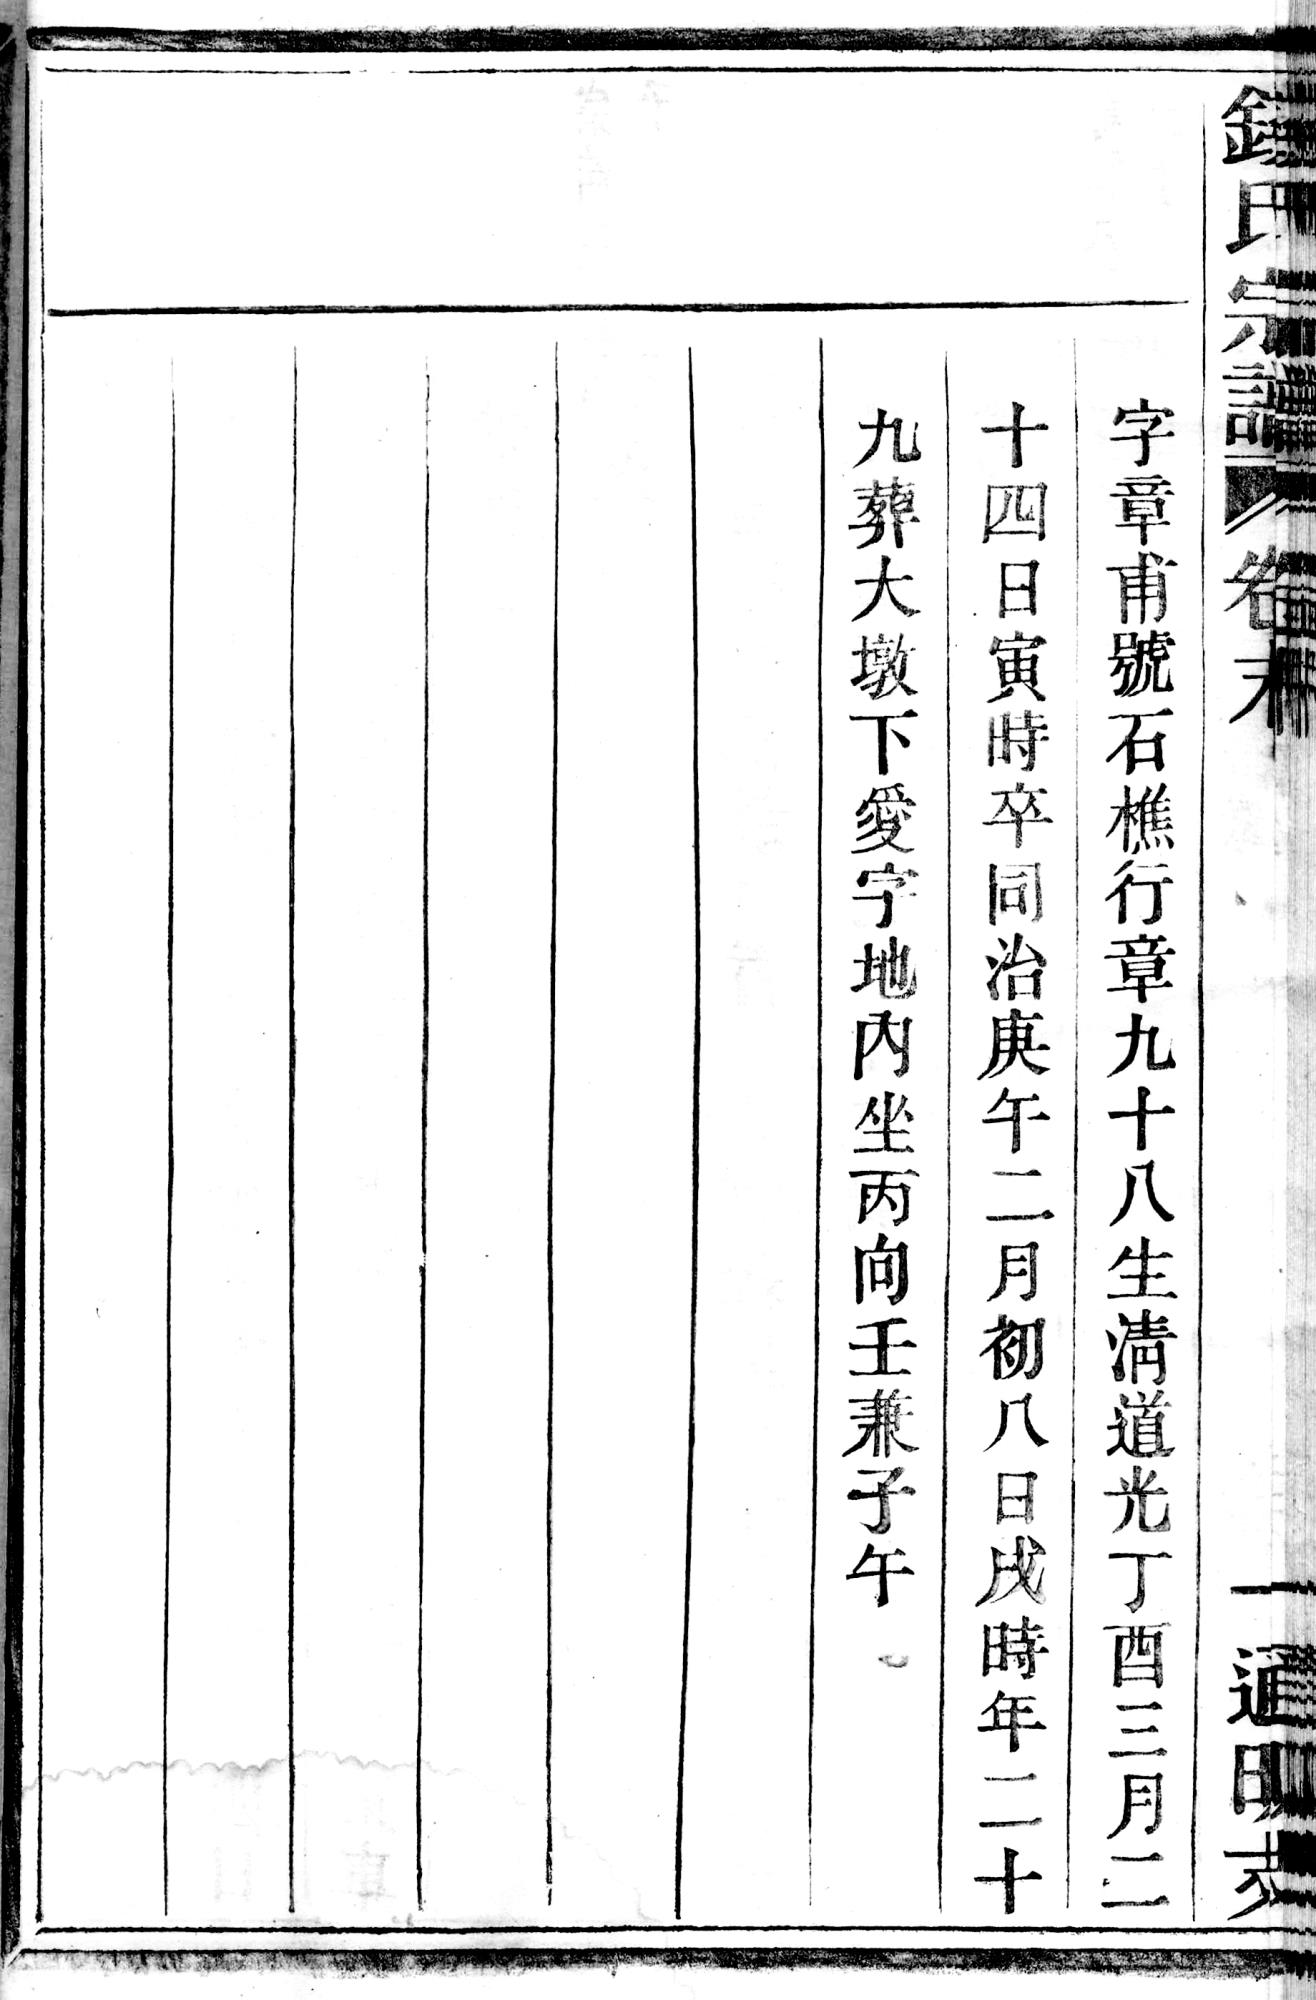 錢氏宗譜 卷末 一 通明支
字章甫號石樵行章九十八生淸道光丁酉三月二
十四日寅時卒同治庚午二月初八日戌時年二十
九葬大墩下愛字地內坐丙向壬兼子午